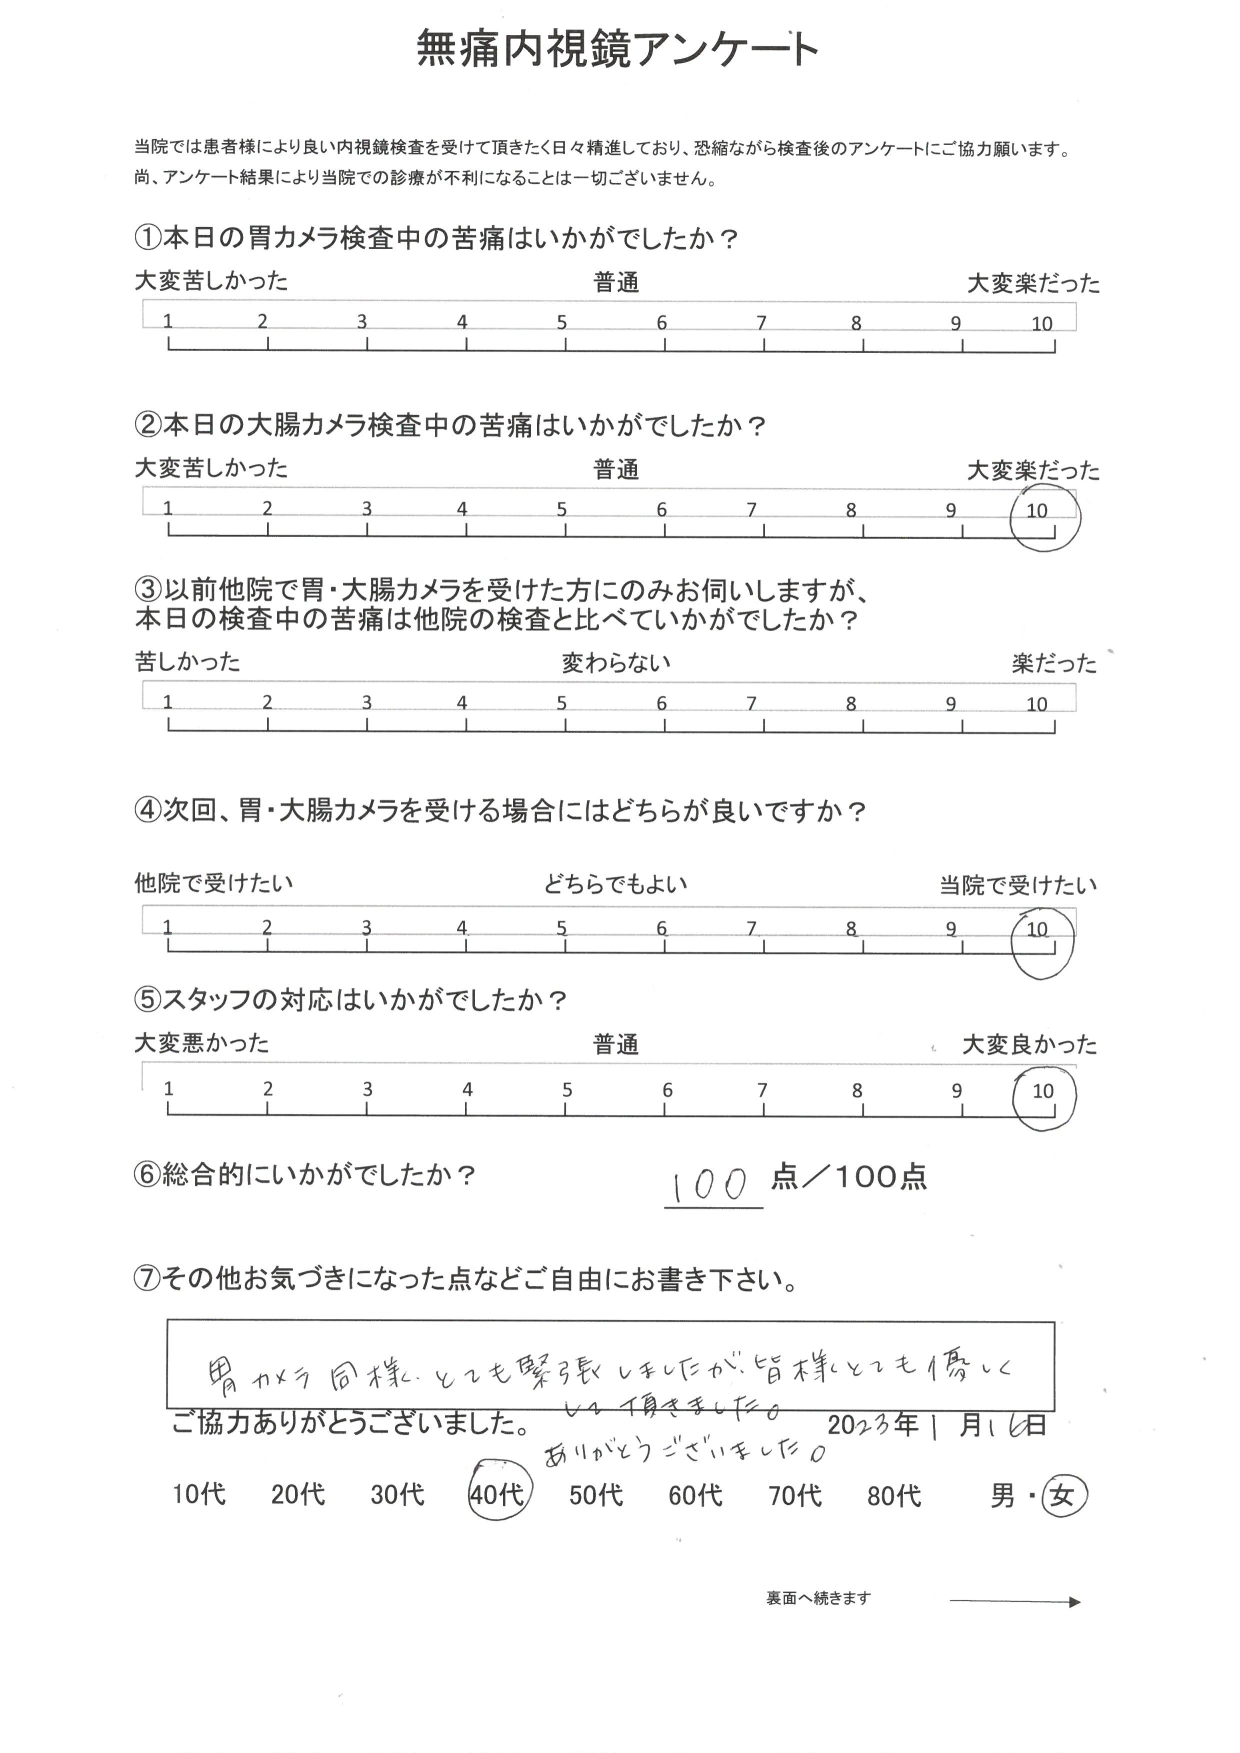 無痛内視鏡アンケート
当院では患者様により良い内視鏡検査を受けて頂きたく日々精進しており、恐縮ながら検査後のアンケートにご協力願います。
尚、アンケート結果により当院での診療が不利になることは一切ございません。
①本日の胃カメラ検査中の苦痛はいかがでしたか？
大変苦しかった 普通 大変楽だった
1 2 3 4 5 6 7 8 9 10
②本日の大腸カメラ検査中の苦痛はいかがでしたか？
大変苦しかった 普通 大変楽だった
1 2 3 4 5 6 7 8 9 10
③以前他院で胃・大腸カメラを受けた方にのみお伺いしますが、
本日の検査中の苦痛は他院の検査と比べていかがでしたか？
苦しかった 変わらない 楽だった
1 2 3 4 5 6 7 8 9 10
④次回、胃・大腸カメラを受ける場合にはどちらが良いですか？
他院で受けたい どちらでもよい 当院で受けたい
1 2 3 4 5 6 7 8 9 10
⑤スタッフの対応はいかがでしたか？
大変悪かった 普通 大変良かった
1 2 3 4 5 6 7 8 9 10
⑥総合的にいかがでしたか？ 100 点／100点
⑦その他お気づきになった点などご自由にお書き下さい。
胃カメラ同様、とても緊張しましたが、皆様とても優しく
して頂きました。
ご協力ありがとうございました。 2023年1月16日
ありがとうございました。
10代 20代 30代 40代 50代 60代 70代 80代 男・女
裏面へ続きます